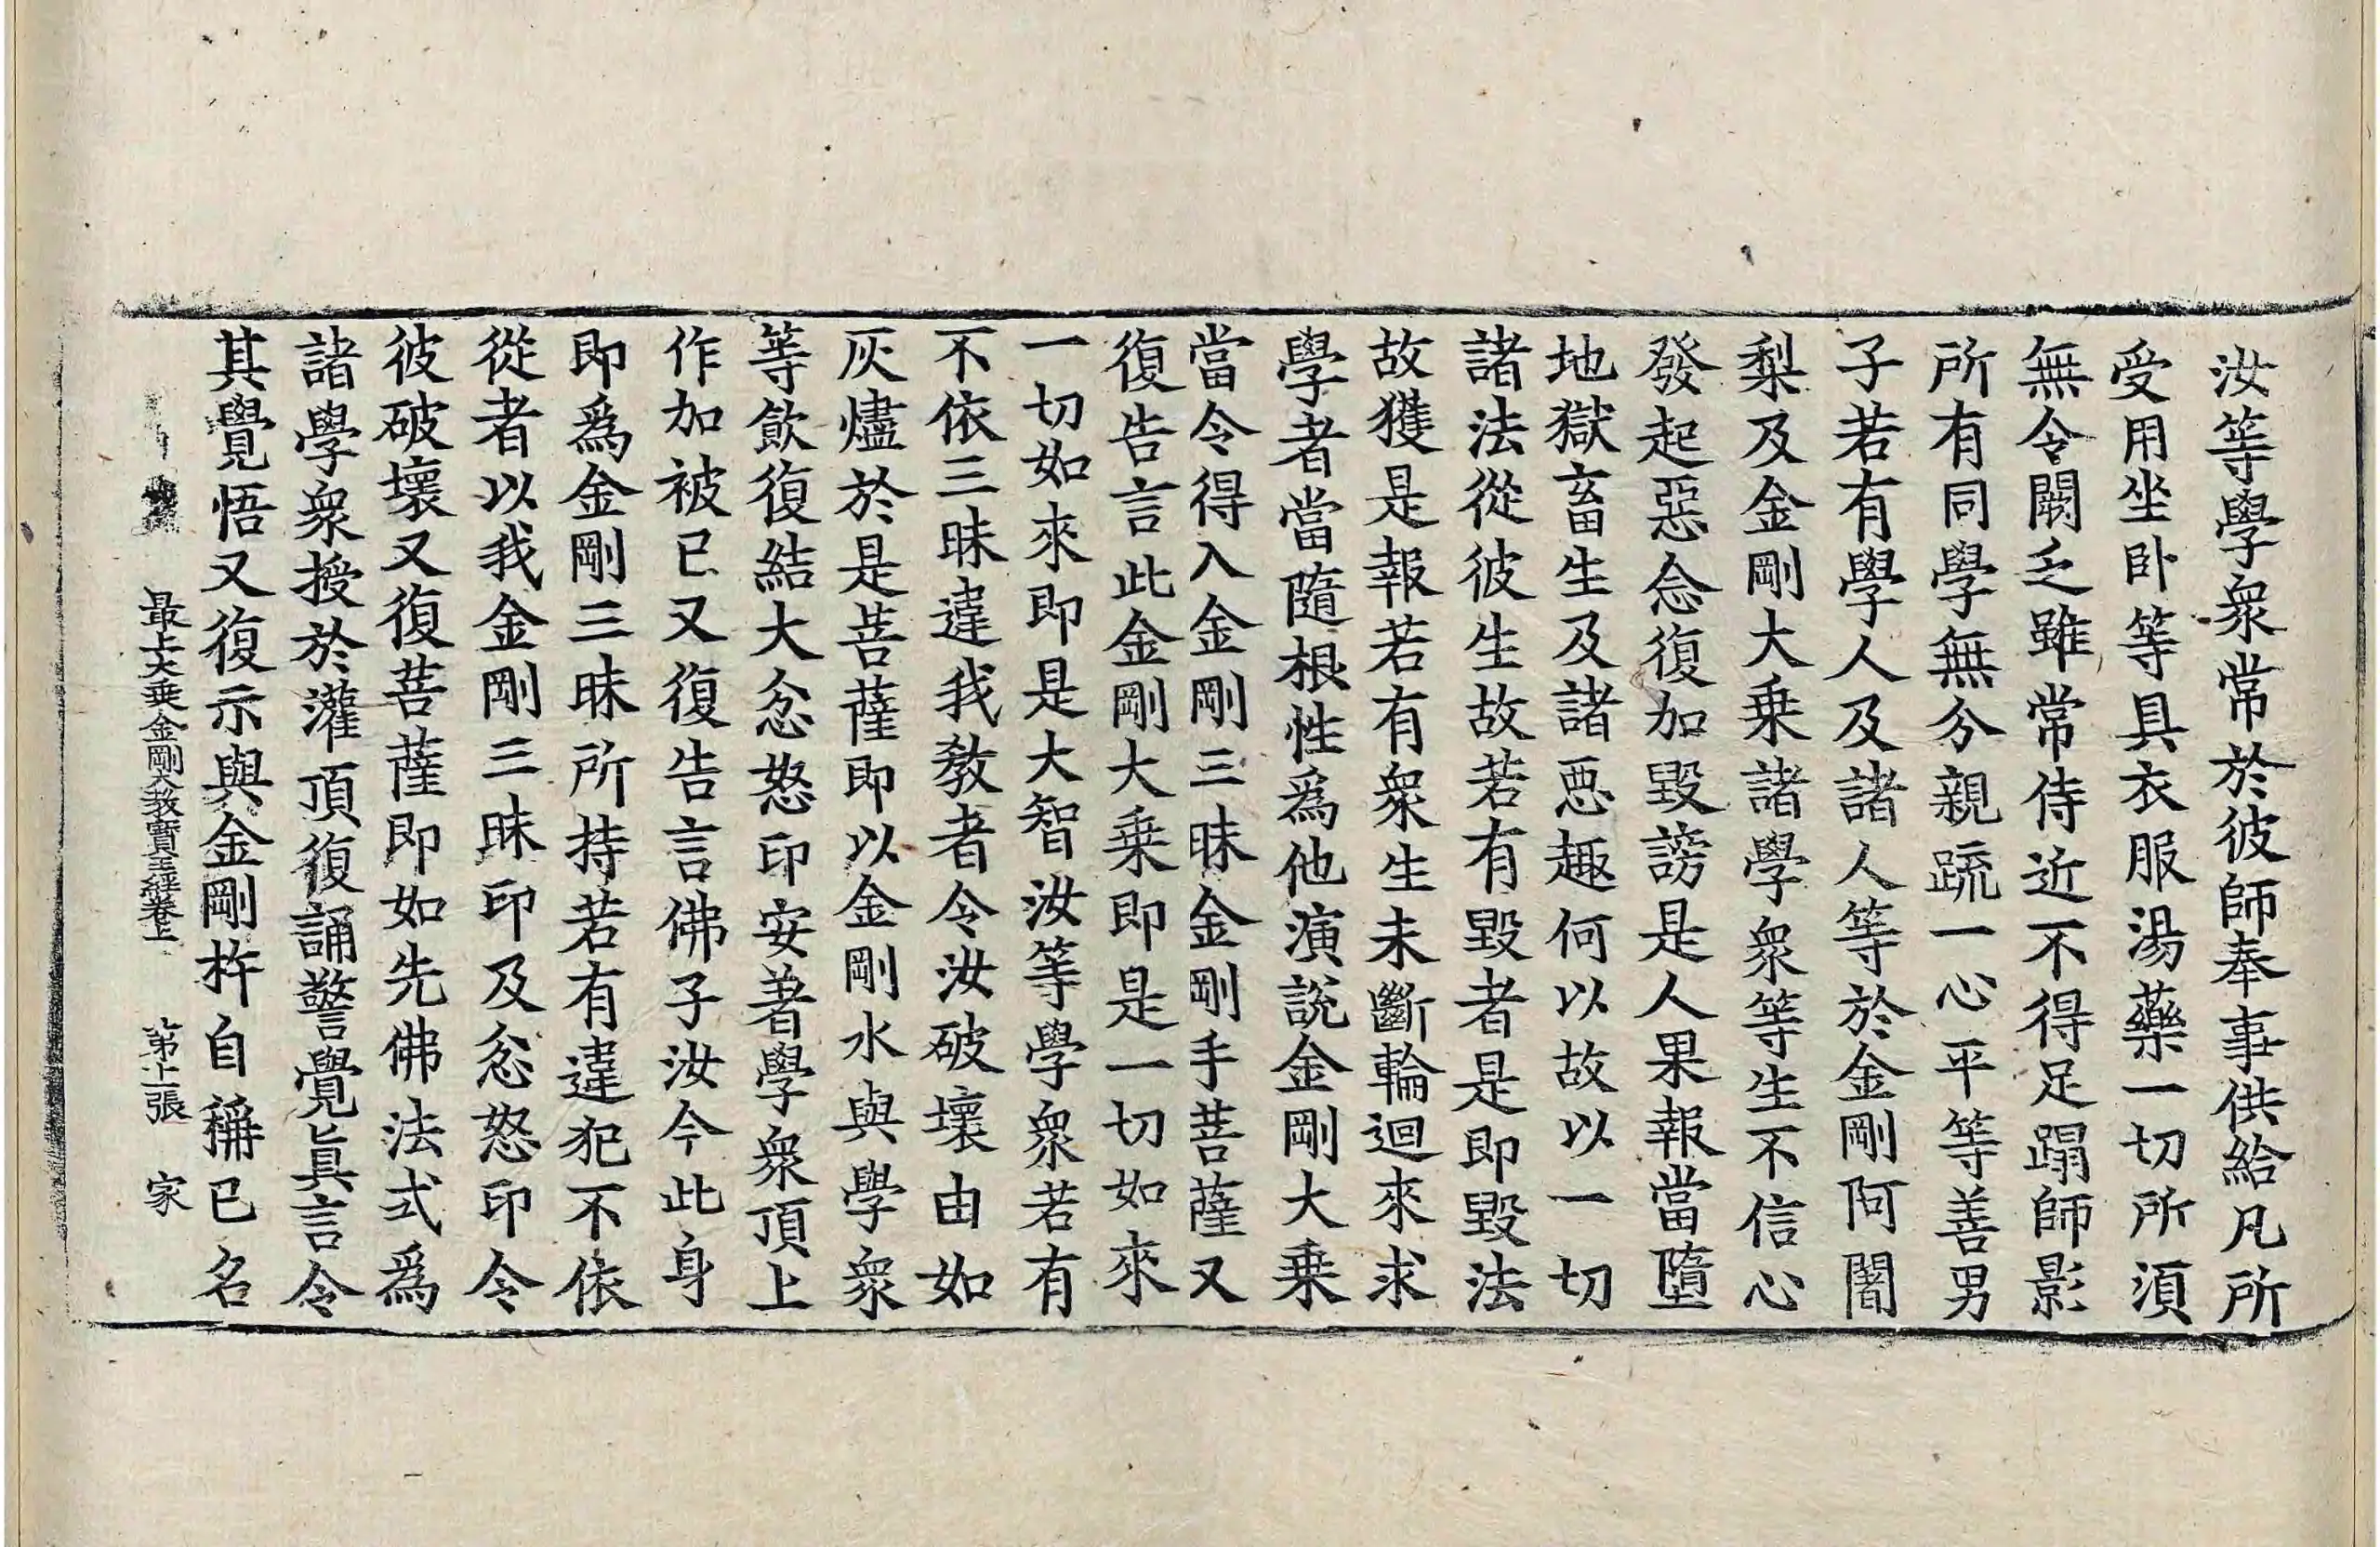 汝等學衆常於彼師奉事供給凡所
受用坐卧等具衣服湯藥一切所湏
無令闕乏雖常侍近不得足蹋師影
所有同學無分親疏一心平等善男
子若有學人及諸人等於金剛阿闍
梨及金剛大乗諸學衆等生不信心
發起惡念復加毀謗是人果報當墮
地獄畜生及諸惡趣何以故以一切
諸法從彼生故若有毀者是即毀法
故獲是報若有衆生未斷輪迴來求
學者當隨根性爲他演說金剛大乗
當令得入金剛三昧金剛手菩薩又
復告言此金剛大乗即是一切如來
一切如來即是大智汝等學衆若有
不依三昧違我教者令汝破壞由如
灰燼於是菩薩即以金剛水與學衆
等飲復結大忿怒印安著學衆頂上
作加被已又復告言佛子汝今此身
即爲金剛三昧所持若有違犯不依
從者以我金剛三昧印及忿怒印令
彼破壞又復菩薩即如先佛法式爲
諸學衆授於灌頂復誦警覺眞言令
其覺悟又復示與金剛杵自稱已名
最上大乗金剛大教寳王經卷上 第 張 家